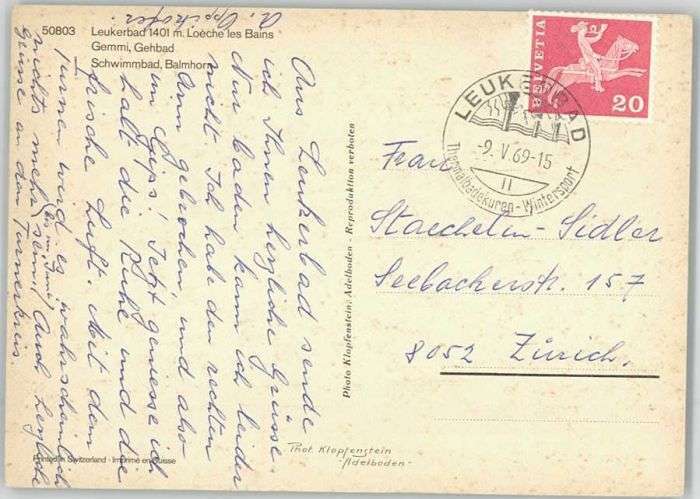 50803 Leukerbad 1401 m. Loèche les Bains
Gemmi, Gehbad
Schwimmbad, Balmhorn
Aus Leukerbad sende
ich Ihnen herzliche Grüsse.
Nur baden kann ich leider
nicht. Ich habe den rechten
Arm gebrochen, und also
im Gips! Jetzt geniesse ich
halt die Ruhe und die
frische Luft. Mit dem
Turnen wird es wahrscheinlich
(bis im Juni)
nichts mehr sein! Auch herzliche
Grüsse an den Turnerkreis.
Printed in Switzerland - Imprimé en Suisse
Photo Klopfenstein, Adelboden - Reproduktion verboten
Phot. Klopfenstein
-Adelboden-
HELVETIA
20
LEUKERBAD
-9. V. 69-15
11
Thermalbadekuren - Wintersport
Frau
Staechelin-Sidler
Seebacherstr. 157
8052 Zürich.